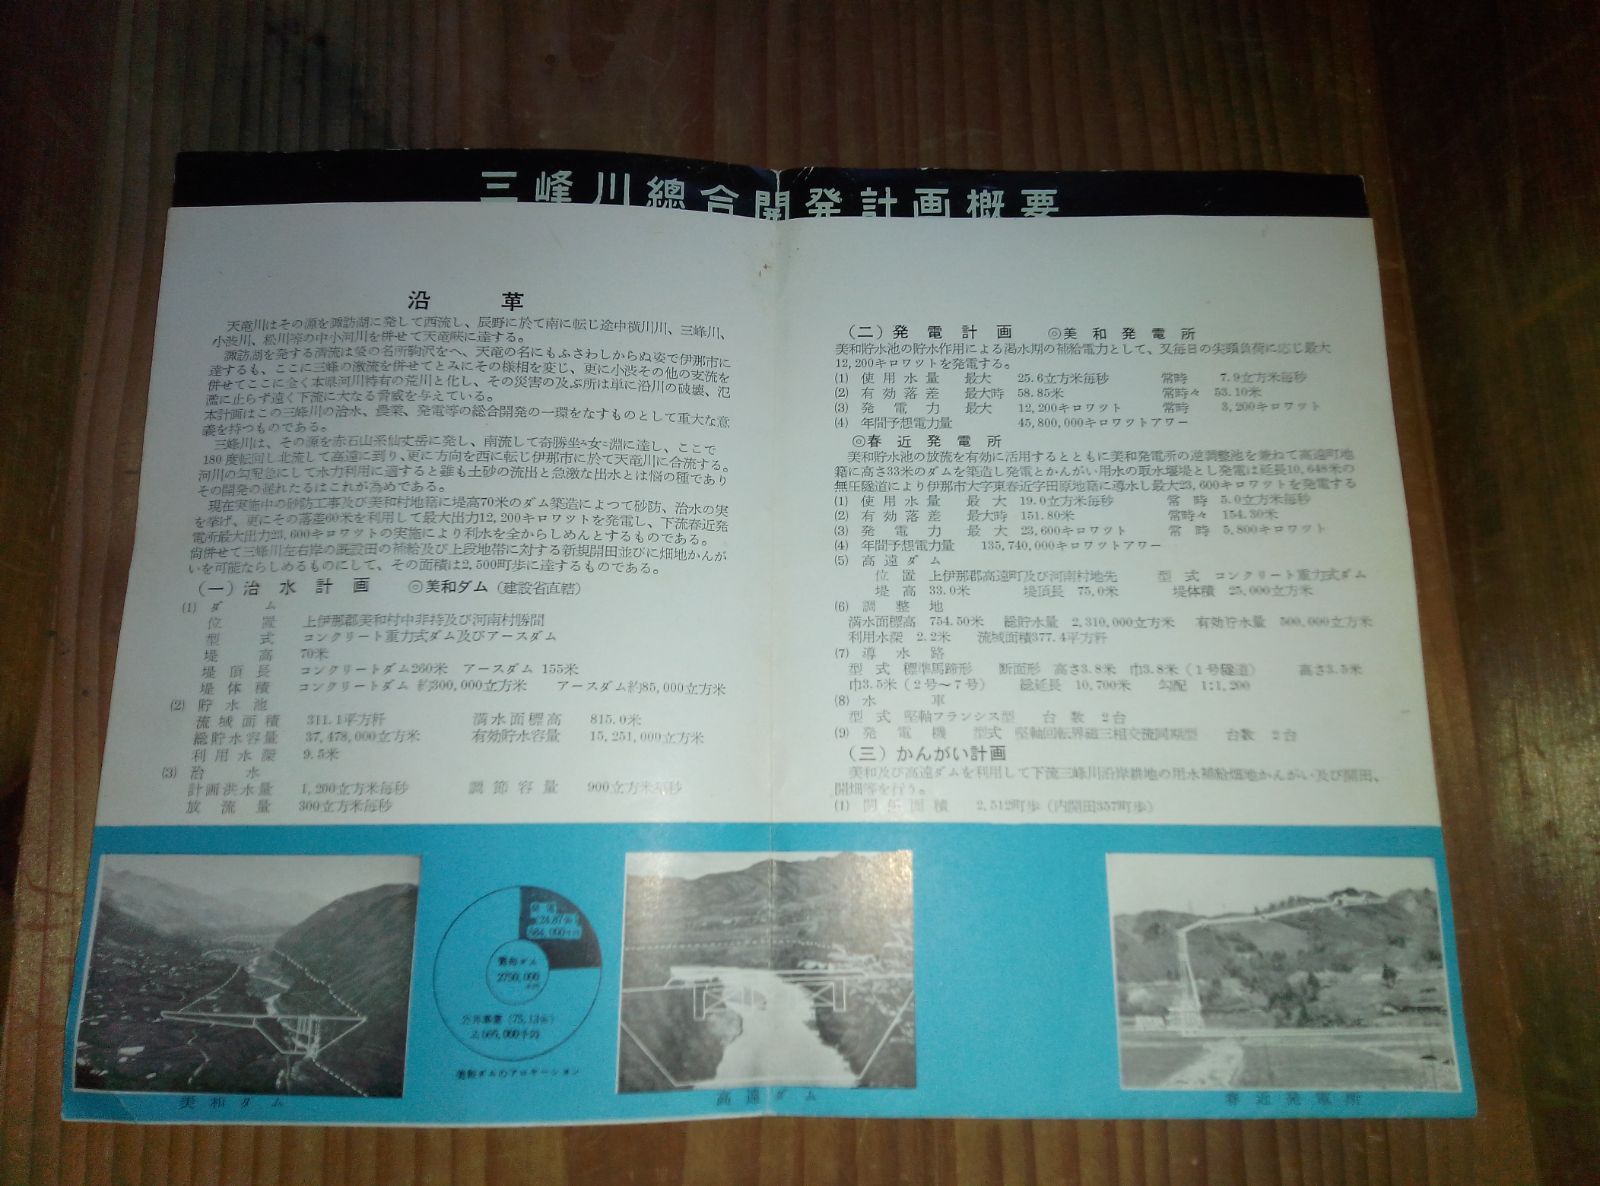 三峰川總合開発計画概要
沿革
天竜川はその源を諏訪湖に発して西流し、辰野に於て南に転じ途中横川川、三峰川、
小渋川、松川等の中小河川を併せて天竜峡に達する。
諏訪湖を発する清流は蛍の名所駒沢をへ、天竜の名にもふさわしからぬ姿で伊那市に
達するも、ここに三峰の激流を併せてとみにその様相を変じ、更に小渋その他の支流を
併せてここに全く本県河川特有の荒川と化し、その災害の及ぶ所は単に沿川の破壊、氾
濫に止らず遠く下流に大なる脅威を与えている。
本計画はこの三峰川の治水、農業、発電等の総合開発の一環をなすものとして重大な意
義を持つものである。
三峰川は、その源を赤石山系仙丈岳に発し、南流して奇勝坐女淵に達し、ここで
180度転回し北流して高遠に到り、更に方向を西に転じ伊那市に於て天竜川に合流する。
河川の勾配急にして水力利用に適すると雖も土砂の流出と急激な出水とは悩の種であり
その開発の遅れたるはこれが為めである。
現在実施中の砂防工事及び美和村地籍に堤高70米のダム築造によつて砂防、治水の実
を挙げ、更にその落差60米を利用して最大出力12,200キロワツトを発電し、下流春近発
電所最大出力23,600キロワツトの実施により利水を全からしめんとするものである。
尚併せて三峰川左右岸の既設田の補給及び上段地帯に対する新規開田並びに畑地かんが
いを可能ならしめるものにして、その面積は2,500町歩に達するものである。
(一) 治水計画 ◎美和ダム (建設省直轄)
(1) ダム
位置 上伊那郡美和村中非持及び河南村勝間
型式 コンクリート重力式ダム及びアースダム
堤高 70米
堤頂長 コンクリートダム260米 アースダム 155米
堤体積 コンクリートダム 約300,000立方米 アースダム約85,000立方米
(2) 貯水池
流域面積 311.1平方粁 満水面標高 815.0米
総貯水容量 37,478,000立方米 有効貯水容量 15,251,000立方米
利用水深 9.5米
(3) 治水
計画洪水量 1,200立方米毎秒 調節容量 900立方米毎秒
放流量 300立方米毎秒
(二) 発電計画 ◎美和発電所
美和貯水池の貯水作用による渇水期の補給電力として、又毎日の尖頭負荷に応じ最大
12,200キロワツトを発電する。
(1) 使用水量 最大 25.6立方米毎秒 常時 7.9立方米毎秒
(2) 有効落差 最大時 58.85米 常時々 53.10米
(3) 発電力 最大 12,200キロワツト 常時 3,200キロワツト
(4) 年間予想電力量 45,800,000キロワツトアワー
◎春近発電所
美和貯水池の放流を有効に活用するとともに美和発電所の逆調整池を兼ねて高遠町地
籍に高さ33米のダムを築造し発電とかんがい用水の取水堰堤とし発電は延長10,648米の
無圧隧道により伊那市大字東春近字田原地籍に導水し最大23,600キロワツトを発電する
(1) 使用水量 最大 19.0立方米毎秒 常時 5.0立方米毎秒
(2) 有効落差 最大時 151.80米 常時々 154.30米
(3) 発電力 最大 23,600キロワツト 常時 5,800キロワツト
(4) 年間予想電力量 135,740,000キロワツトアワー
(5) 高遠ダム
位置 上伊那郡高遠町及び河南村地先 型式 コンクリート重力式ダム
堤高 33.0米 堤頂長 75,0米 堤体積 25,000立方米
(6) 調整地
満水面標高 754.50米 総貯水量 2,310,000立方米 有効貯水量 500,000立方米
利用水深 2.2米 流域面積377.4平方粁
(7) 導水路
型式 標準馬蹄形 断面形 高さ3.8米 巾3.8米 (1号隧道) 高さ3.5米
巾3.5米 (2号〜7号) 総延長 10,700米 勾配 1:1,200
(8) 水車
型式 堅軸フランシス型 台数 2台
(9) 発電機 型式 堅軸回転界磁三相交流同期型 台数 2台
(三) かんがい計画
美和及び高遠ダムを利用して下流三峰川沿岸耕地の用水補給畑地かんがい及び開田、
開畑等を行う。
(1) 関係面積 2,512町歩 (内開田357町歩)
発電
(24.87%)
684,000千円
美和ダム
2750,000
千円
公共事業 (75.13%)
2,066,000千円
美和ダムのアロケーション
美和ダム
高遠ダム
春近発電所